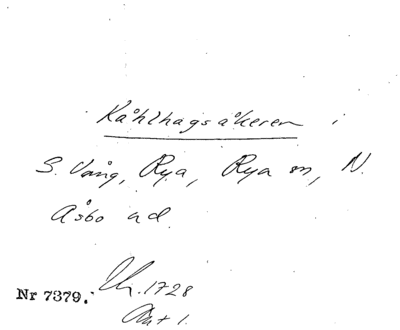 Kåhlhagsåkeren i
S. Vång, Rya, Rya sn, N.
Åsbo hd.
Nr 7379. Lm. 1728
Akt 1.